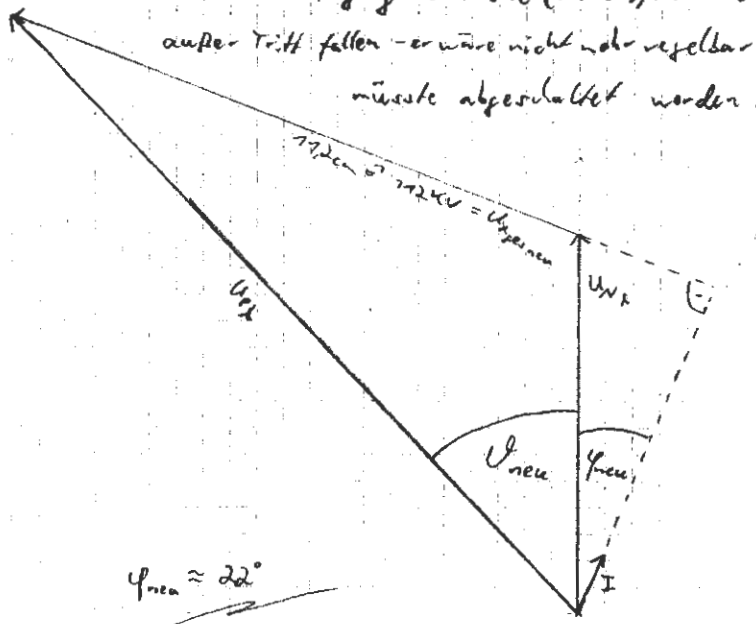 außer Tritt fallen - er wäre nicht mehr regelbar
müsste abgeschaltet werden.
11,2cm ≙ 112kV = U_x,ges,neu
U_pλ
U_Nλ
ϑ_neu
φ_neu
I
φ_neu ≈ 22°